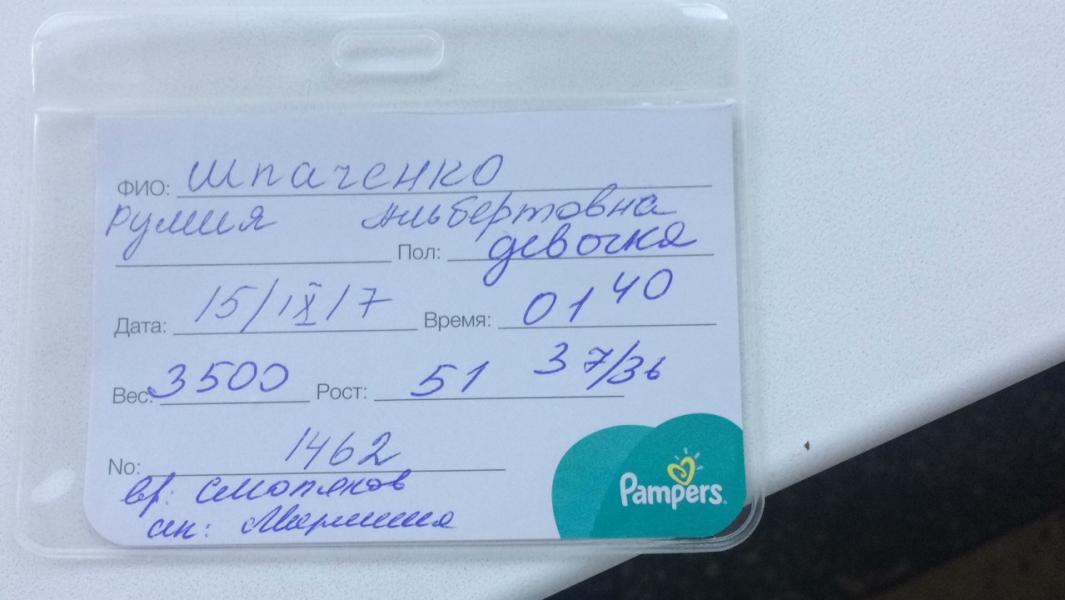 ФИО: Шпаченко
Румия Альбертовна
Пол: девочка
Дата: 15/IX/17 Время: 01 40
Вес: 3500 Рост: 51 37/36
No: 1462
вр: Смоляков
ак: Маришина
Pampers